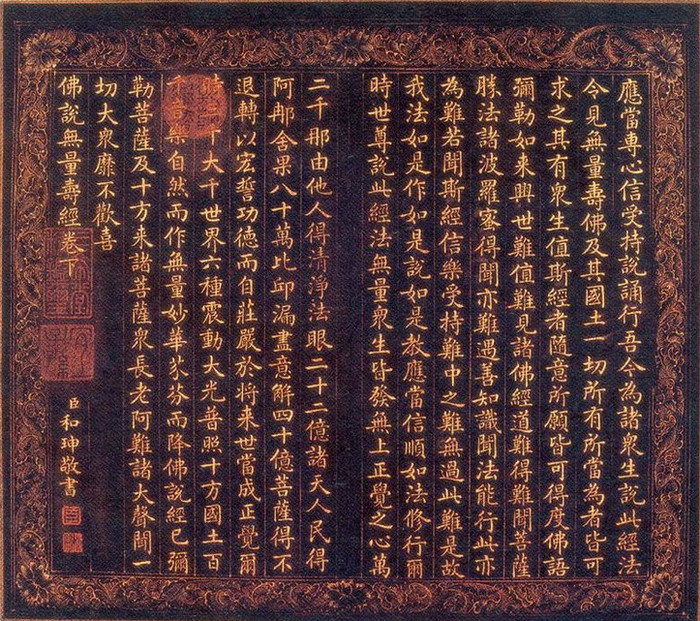 應當專心信受持說誦行吾今為諸衆生說此經法
今見無量壽佛及其國土一切所有所當為者皆可
求之其有衆生值斯經者隨意所願皆可得度佛語
彌勒如來興世難值難見諸佛經道難得難聞菩薩
勝法諸波羅蜜得聞亦難遇善知識聞法能行此亦
為難若聞斯經信樂受持難中之難無過此難是故
我法如是作如是說如是教應當信順如法修行爾
時世尊說此經法無量衆生皆發無上正覺之心萬
二千那由他人得清淨法眼二十二億諸天人民得
阿那舍果八十萬比邱漏盡意解四十億菩薩得不
退轉以宏誓功德而自莊嚴於將來世當成正覺爾
時千大千世界六種震動大光普照十方國土百
千音樂自然而作無量妙華芬而降佛說經已彌
勒菩薩及十方來諸菩薩衆長老阿難諸大聲聞一
切大衆靡不歡喜
佛說無量壽經卷下
臣和珅敬書